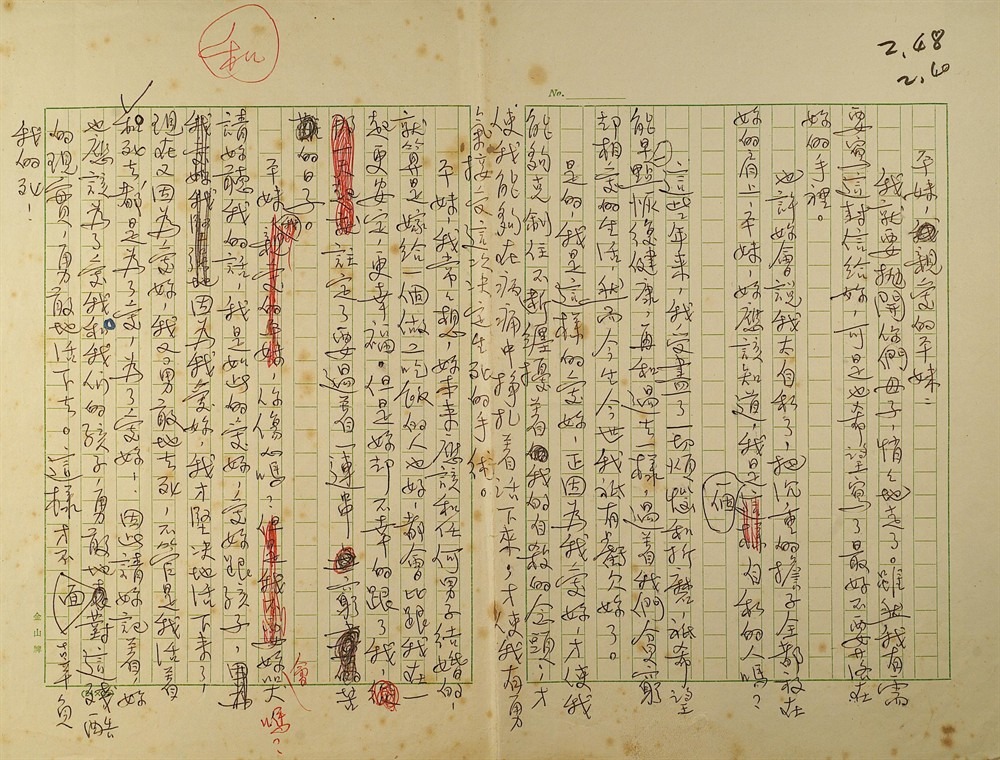 No.
2.48
2.40
平妹，親愛的平妹：
我就要拋開你們母子，悄々地走了。雖然我有需
要寫這封信給妳，可是也希望寫了最好不要再落在
妳的手裡。
也許妳會說我太自私了，把沉重的擔子全部放在
妳的肩上，平妹，妳應該知道，我是一個自私的人嗎？
這些年來，我受盡了一切煩惱和折磨，祗希望
能早點恢復健康，再和過去一樣，過着我們貧窮
却相愛的生活，然而今生今世我祗有虧欠妳了。
是的，我是這樣的愛妳，正因為我愛妳，才使我
能夠克制住不斷纏擾着我的自殺的念頭，才
使我能夠在病痛中掙扎着活下來，才使我有勇
氣接受這次決定生死的手術。
平妹，我常々想，妳本來應該和任何男子結婚的，
就算是嫁給一個做工吃飯的人也好，都會比跟我在一
起更安定，更幸福。但是妳却不幸的跟了我
註定了要過着一連串窮苦
的日子。
平妹，你傷心嗎？妳會哭嗎？
請妳聽我的話，我是如此的愛妳，愛妳跟孩子，
因為我愛妳，我才堅決地活下來了，
現在又因為愛妳，我又勇敢地去死，不管是我活着
和死去都是為了愛，為了愛妳！因此請妳記着，妳
也應該為了愛我和我們的孩子，勇敢地面對這殘酷
的現實，勇敢地活下去。這樣才不辜負
我的死！
和